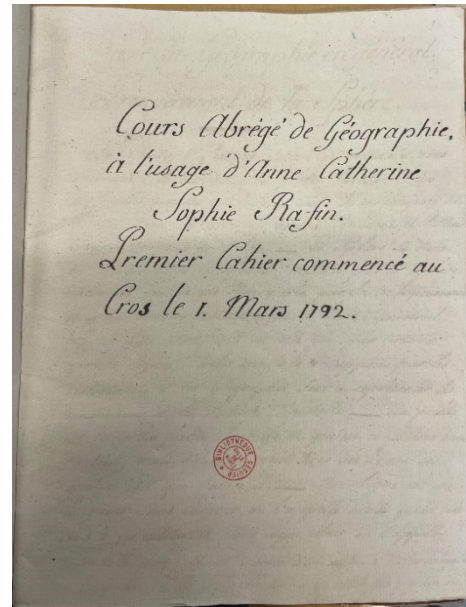 Cours Abrégé de Géographie,
à l'usage d'Anne Catherine
Sophie Rafin.
Premier Cahier commencé au
Cros le 1. Mars 1792.
BIBLIOTHÈQUE